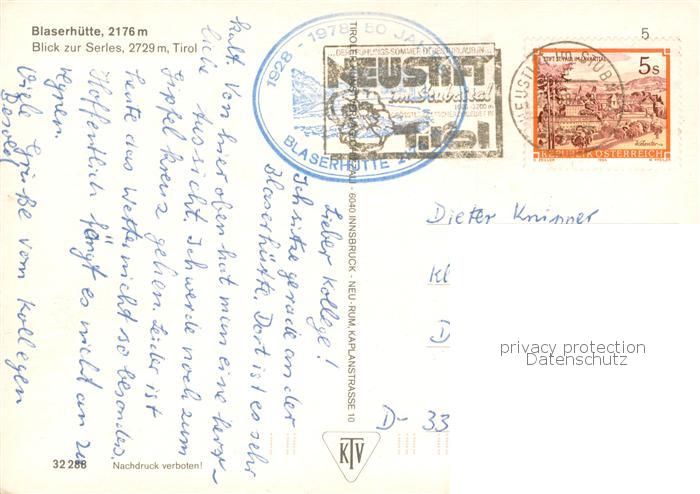 Blaserhütte, 2176 m
Blick zur Serles, 2729 m, Tirol
1928 - 1978 50 JA
BLASERHÜTTE 2
NEUSTIFT
im Stubaital
Tirol
5
5 s
STIFT ST. PAUL IM LAVANTTAL
REPUBLIK ÖSTERREICH
Lieber Kollege!
Ich sitze gerade an der
Blaserhütte. Dort ist es sehr
kalt. Von hier oben hat man eine herr-
liche Aussicht. Ich werde noch zum
Gipfelkreuz gehen. Leider ist
heute das Wetter nicht so besonders.
Hoffentlich fängt es nicht an zu
regnen.
Viele Grüße vom Kollegen
Dieter Knipper
Kl
D
D- 33
6040 INNSBRUCK - NEU-RUM, KAPLANSTRASSE 10
KTV
32 288
Nachdruck verboten!
privacy protection
Datenschutz